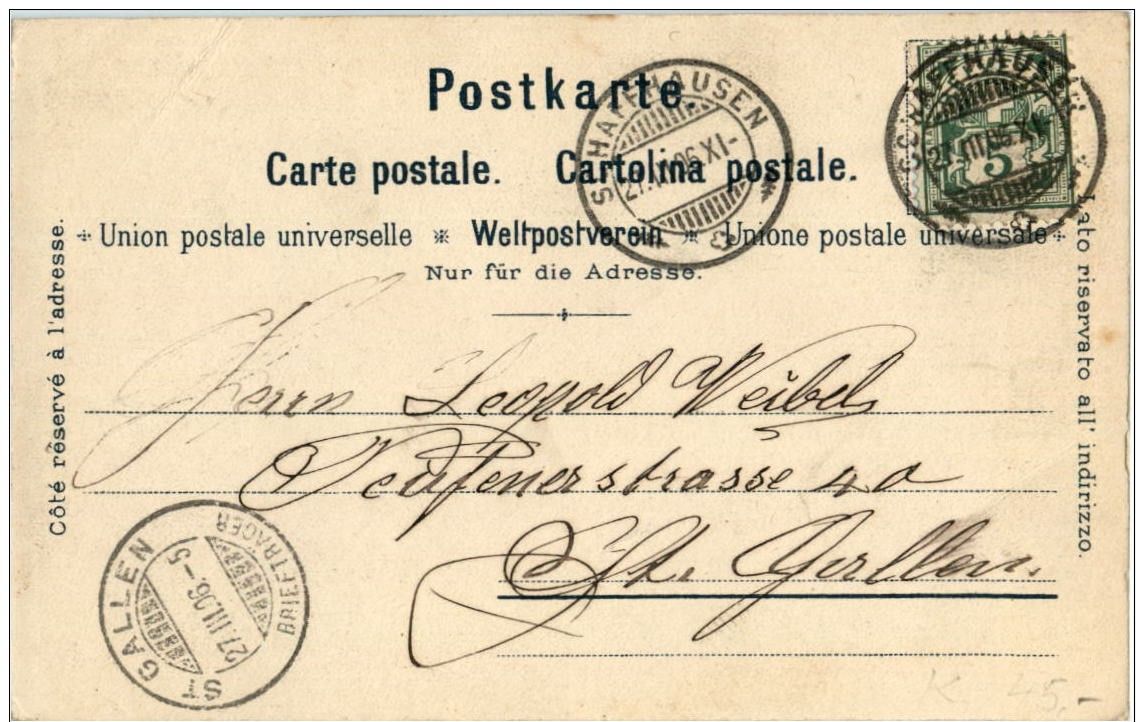 Postkarte.
Carte postale. Cartolina postale.
Union postale universelle * Weltpostverein * Unione postale universale
Nur für die Adresse.
Côté réservé à l'adresse.
Lato riservato all' indirizzo.
SCHAFFHAUSEN
27.III.06.XI-
SCHAFFHAUSEN
27.III.06.XI-
5
Herrn Leopold Weibel
Teufenerstrasse 4a
St. Gallen.
ST GALLEN
27.III.06-5
BRIEFTRÄGER
K 45,-